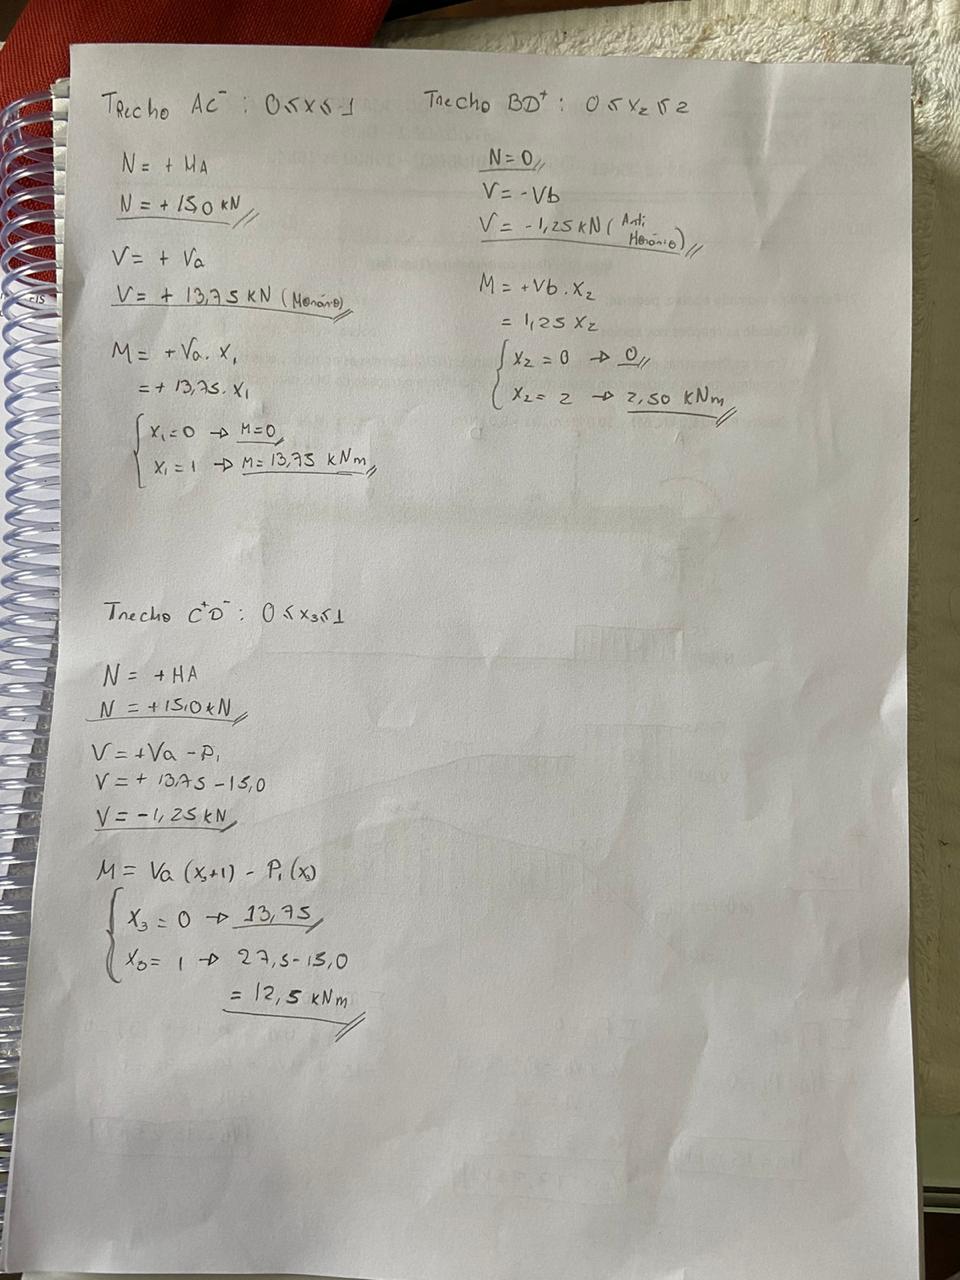 Trecho AC⁻ : 0≤x≤1
N= + HA
N= +15,0 kN
V= + Va
V= + 13,75 KN (Horário)
M= +Va. x₁
=+ 13,75. x₁
x₁=0 → M=0
x₁=1 → M=13,75 kNm
Trecho BD⁺ : 0≤x₂≤2
N=0
V=-Vb
V= -1,25 kN (Anti
Horário)
M= +Vb.x₂
= 1,25 x₂
x₂=0 → 0
x₂=2 → 2,50 kNm
Trecho C⁺D⁻ : 0≤x₃≤1
N= +HA
N = +15,0 kN
V=+Va -P₁
V=+ 13,75 -15,0
V=-1,25 kN
M= Va (x₃+1) - P₁(x₃)
x₃=0 → 13,75
x₃= 1 → 27,5-15,0
= 12,5 kNm